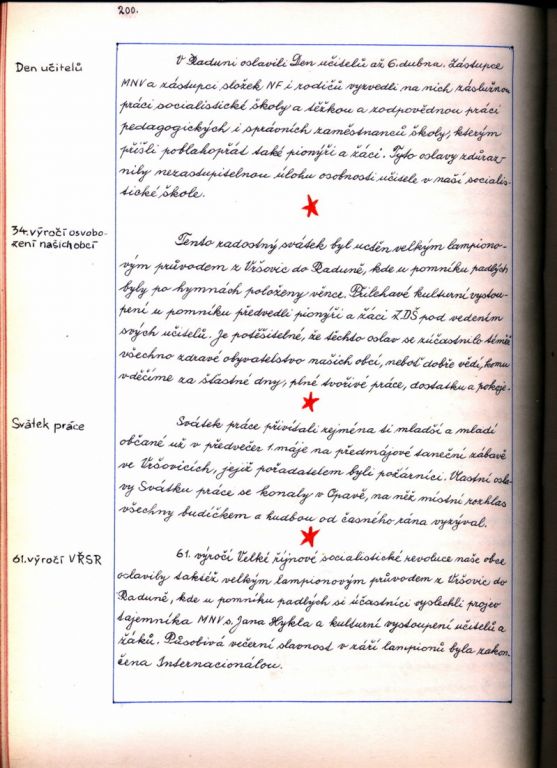 200.
Den učitelů
V Raduni oslavili Den učitelů až 6. dubna. Zástupce
MNV a zástupci složek NF i rodičů vyzvedli na nich záslužnou
práci socialistické školy a těžkou a zodpovědnou práci
pedagogických i správních zaměstnanců školy, kterým
přišli poblahopřát také pionýři a žáci. Tyto oslavy zdůraz-
nily nezastupitelnou úlohu osobnosti učitele v naší socialis-
tické škole.
34. výročí osvobo-
zení našich obcí
Tento radostný svátek byl uctěn velkým lampiono-
vým průvodem z Vršovic do Raduně, kde u pomníku padlých
byly po hymnách položeny věnce. Přiléhavé kulturní vystou-
pení u pomníku předvedli pionýři a žáci ZDŠ pod vedením
svých učitelů. Je potěšitelné, že těchto oslav se zúčastnilo téměř
všechno zdravé obyvatelstvo našich obcí, neboť dobře vědí, komu
vděčíme za šťastné dny, plné tvořivé práce, dostatku a pokoje.
Svátek práce
Svátek práce přivítali zejména ti mladší a mladí
občané už v předvečer 1. máje na předmájové taneční zábavě
ve Vršovicích, jejíž pořadatelem byli požárníci. Vlastní osla-
vy Svátku práce se konaly v Opavě, na něž místní rozhlas
všechny budíčkem a hudbou od časného rána vyzýval.
61. výročí VŘSR
61. výročí Velké říjnové socialistické revoluce naše obce
oslavily taktéž velkým lampionovým průvodem z Vršovic do
Raduně, kde u pomníku padlých si účastníci vyslechli projev
tajemníka MNV s. Jana Hykla a kulturní vystoupení učitelů a
žáků. Působivá večerní slavnost v záři lampionů byla zakon-
čena Internacionálou.